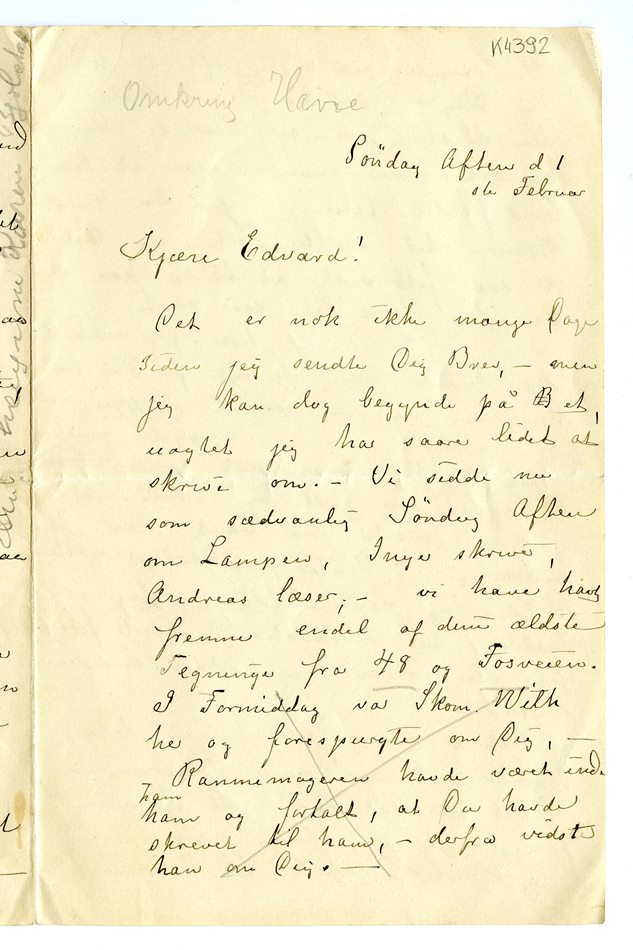 K4392
Omkring Havre
Søndag Aften d 1
ste Februar
Kjære Edvard!
Det er nok ikke mange Dage
siden jeg sendte Dig Brev, – men
jeg kan dog begynde på et,
uagtet jeg har saare lidet at
skrive om. – Vi sidde nu
som sædvanlig Søndag Aften
om Lampen, Inger skriver,
Andreas læser; – vi have havt
fremme endel af dine ældste
Tegninge fra 48 og Fosveien.
I Formiddag va Skom. With
he og forespurgte om Dig, –
Rammemageren havde været inde
ham
ham og fortalt, at Du havde
skrevet til ham, – derfra vidste
han om Dig. –